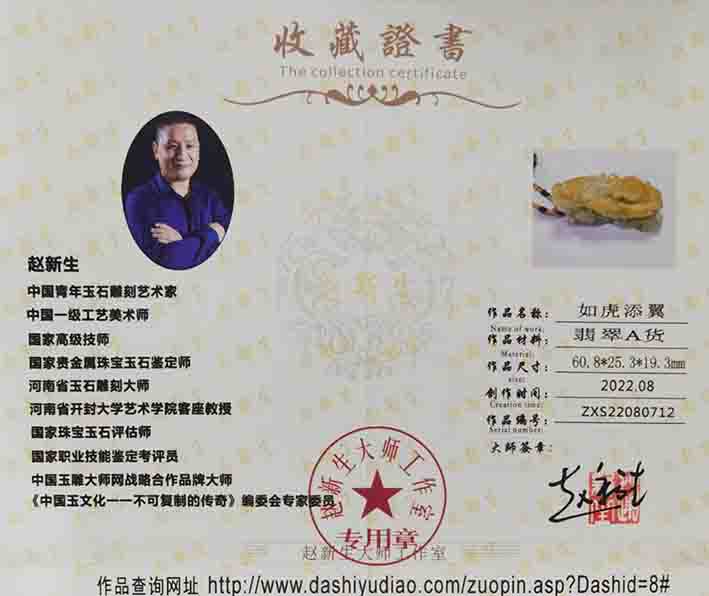 收藏證書
The collection certificate
赵新生
中国青年玉石雕刻艺术家
中国一级工艺美术师
国家高级技师
国家贵金属珠宝玉石鉴定师
河南省玉石雕刻大师
河南省开封大学艺术学院客座教授
国家珠宝玉石评估师
国家职业技能鉴定考评员
中国玉雕大师网战略合作品牌大师
《中国玉文化一一不可复制的传奇》编委会专家委员
作品名称: 如虎添翼
Name of work:
作品材料: 翡翠A货
Material:
作品尺寸: 60.8*25.3*19.3mm
size:
创作时间: 2022.08
Creation time:
作品编号: ZXS22080712
Serial number:
大师签章:
赵新生
赵新生大师工作室
专用章
赵新生大师工作室
作品查询网址 http://www.dashiyudiao.com/zuopin.asp?Dashid=8#